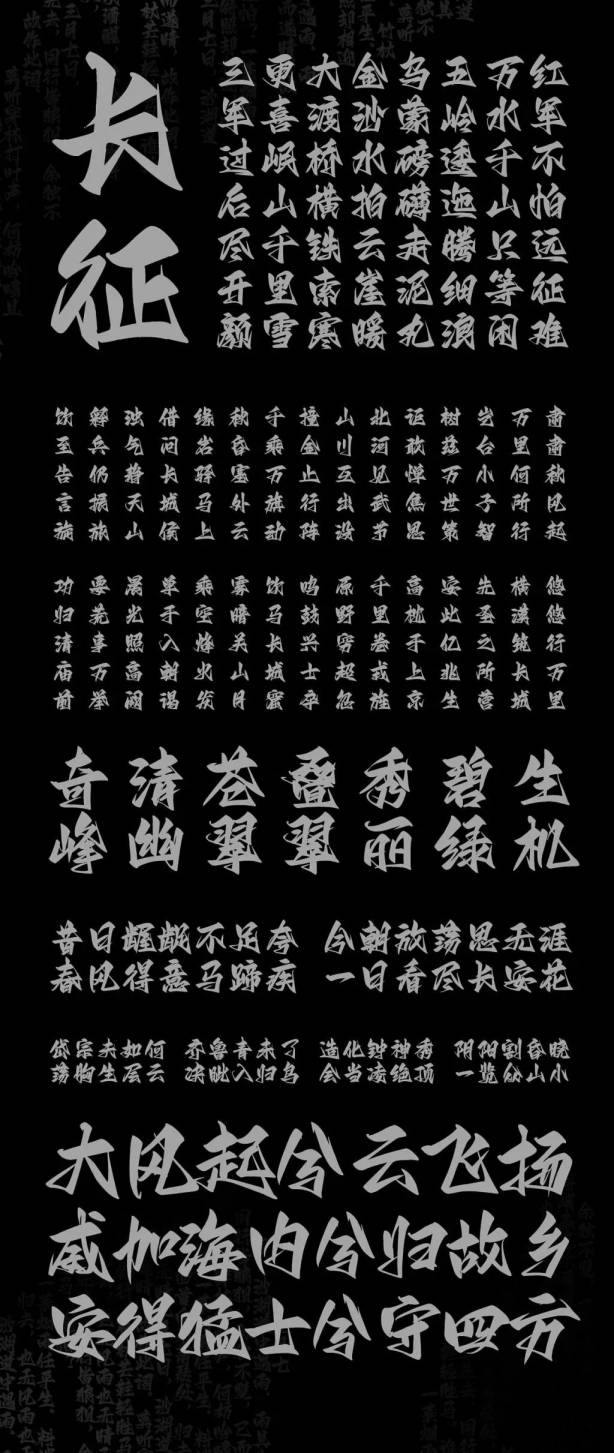 长征
红军不怕远征难
万水千山只等闲
五岭逶迤腾细浪
乌蒙磅礴走泥丸
金沙水拍云崖暖
大渡桥横铁索寒
更喜岷山千里雪
三军过后尽开颜
肃肃秋风起
万里何所行
岂台小子智
树兹万世策
讵敢惮焦思
北河见武节
山川互出没
撞金止行阵
千乘万旗动
秋昏塞外云
缘岩驿马上
借问长城侯
浊气静天山
释兵仍振旅
饮至告言旋
悠悠行万里
横漠筑长城
先圣之所营
安此亿兆生
高枕于上京
千里卷戎旌
原野穷超忽
鸣鼓兴士卒
饮马长城窟
雾暗关山月
乘空烽火发
单于入朝谒
晨光照高阙
要荒事万举
功归清庙前
生机
碧绿
秀丽
叠翠
苍翠
清幽
奇峰
昔日龌龊不足夸 今朝放荡思无涯
春风得意马蹄疾 一日看尽长安花
岱宗夫如何 齐鲁青未了 造化钟神秀 阴阳割昏晓
荡胸生层云 决眦入归鸟 会当凌绝顶 一览众山小
大风起兮云飞扬
威加海内兮归故乡
安得猛士兮守四方